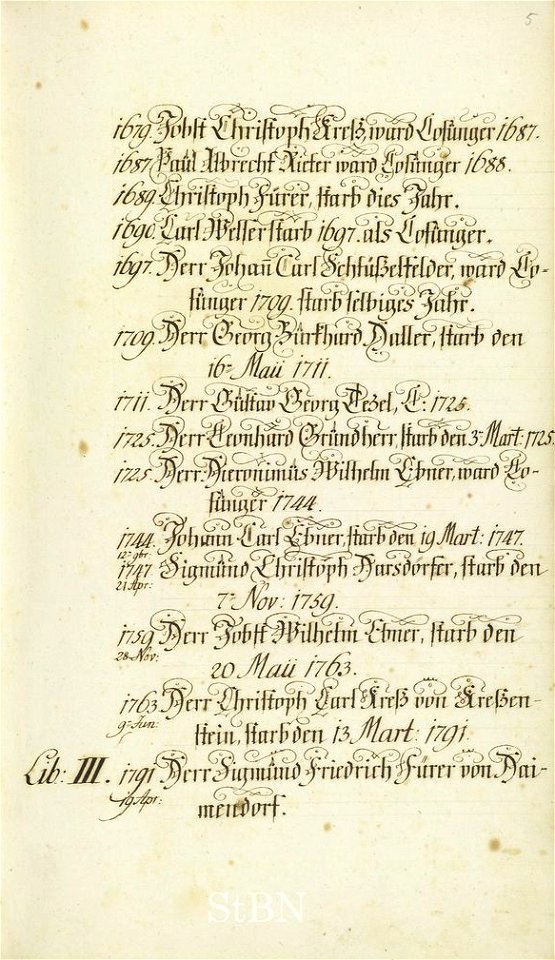 5
1679. Jobst Christoph Kreß, ward Losünger 1687.
1687. Paul Albrecht Rieter ward Losünger 1688.
1689. Christoph Fürer, starb dies Jahr.
1690. Carl Welser starb 1697. als Losünger.
1697. Herr Johan̄ Carl Schlüßelfelder, ward Lo-
sünger 1709. starb selbiges Jahr.
1709. Herr Georg Bürkhard Haller, starb den
16. Maii 1711.
1711. Herr Güstav Georg Tezel, 1725.
1725. Herr Leonhard Gründherr, starb den 3. Mart: 1725
1725. Herr Hieronimüs Wilhelm Ebner, ward Lo-
sünger 1744.
1744. Johann Carl Ebner, starb den 19 Mart: 1747.
12. 9br.
1747. Sigmünd Christoph Harsdörfer, starb den
21 Apr:
7. Nov: 1759.
1759 Herr Jobst Wilhelm Ebner, starb den
28 Nov:
20 Maii 1763.
1763. Herr Christoph Carl Kreß von Kreßen-
9. Jun:
stein, starb den 13 Mart: 1791.
Lib: III. 1791 Herr Sigmünd Friedrich Fürer von Hai-
19 Apr:
mendorf.
StBN